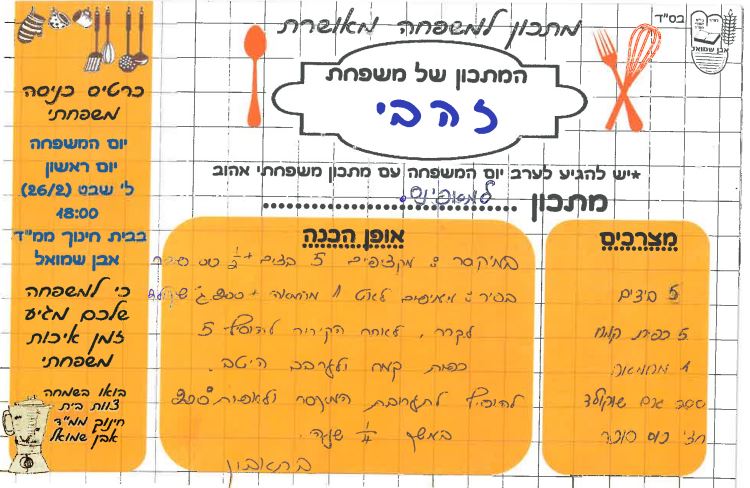 בס"ד
אבן שמואל
מתכון למשפחה מאושרת
המתכון של משפחת
זהבי
*יש להגיע לערב יום המשפחה עם מתכון משפחתי אהוב
מתכון למאפינס
מצרכים
5 ביצים
5 כפית קמח
1 מרגרינה
200 גרם שוקולד
חצי כוס סוכר
אופן הכנה
במיקסר: מקציפים 5 ביצים + 1/2 כוס סוכר
בסיר: ממיסים לאט 1 מרגרינה + 200 ג' שוקולד
לקרר, לאחר הקירור להוסיף 5
כפות קמח ולערבב היטב.
להוסיף לתערובת המיקסר ולאפות 200°
במשך 1/4 שעה.
בתאבון
כרטיס כניסה
משפחתי
יום המשפחה
יום ראשון
ל' שבט (26/2)
18:00
בבית חינוך ממ"ד
אבן שמואל
כי למשפחה
שלכם מגיע
זמן איכות
משפחתי
בואו בשמחה
צוות בית
חינוך ממ"ד
אבן שמואל